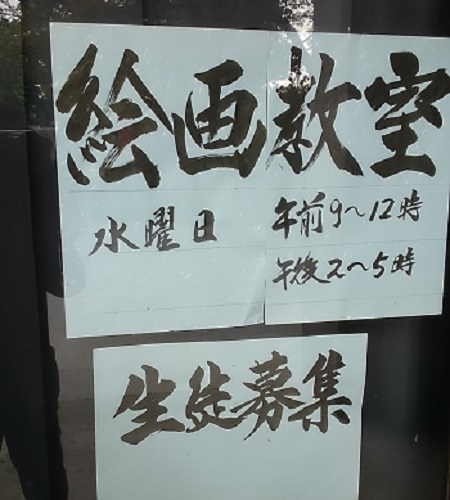 絵画教室
水曜日
午前9〜12時
午後2〜5時
生徒募集